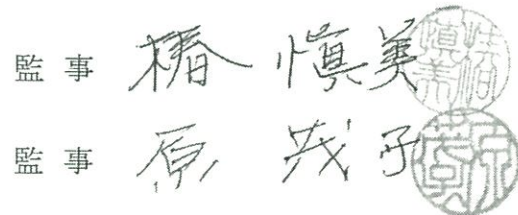 監事 椿 慎美
監事 原 茂子